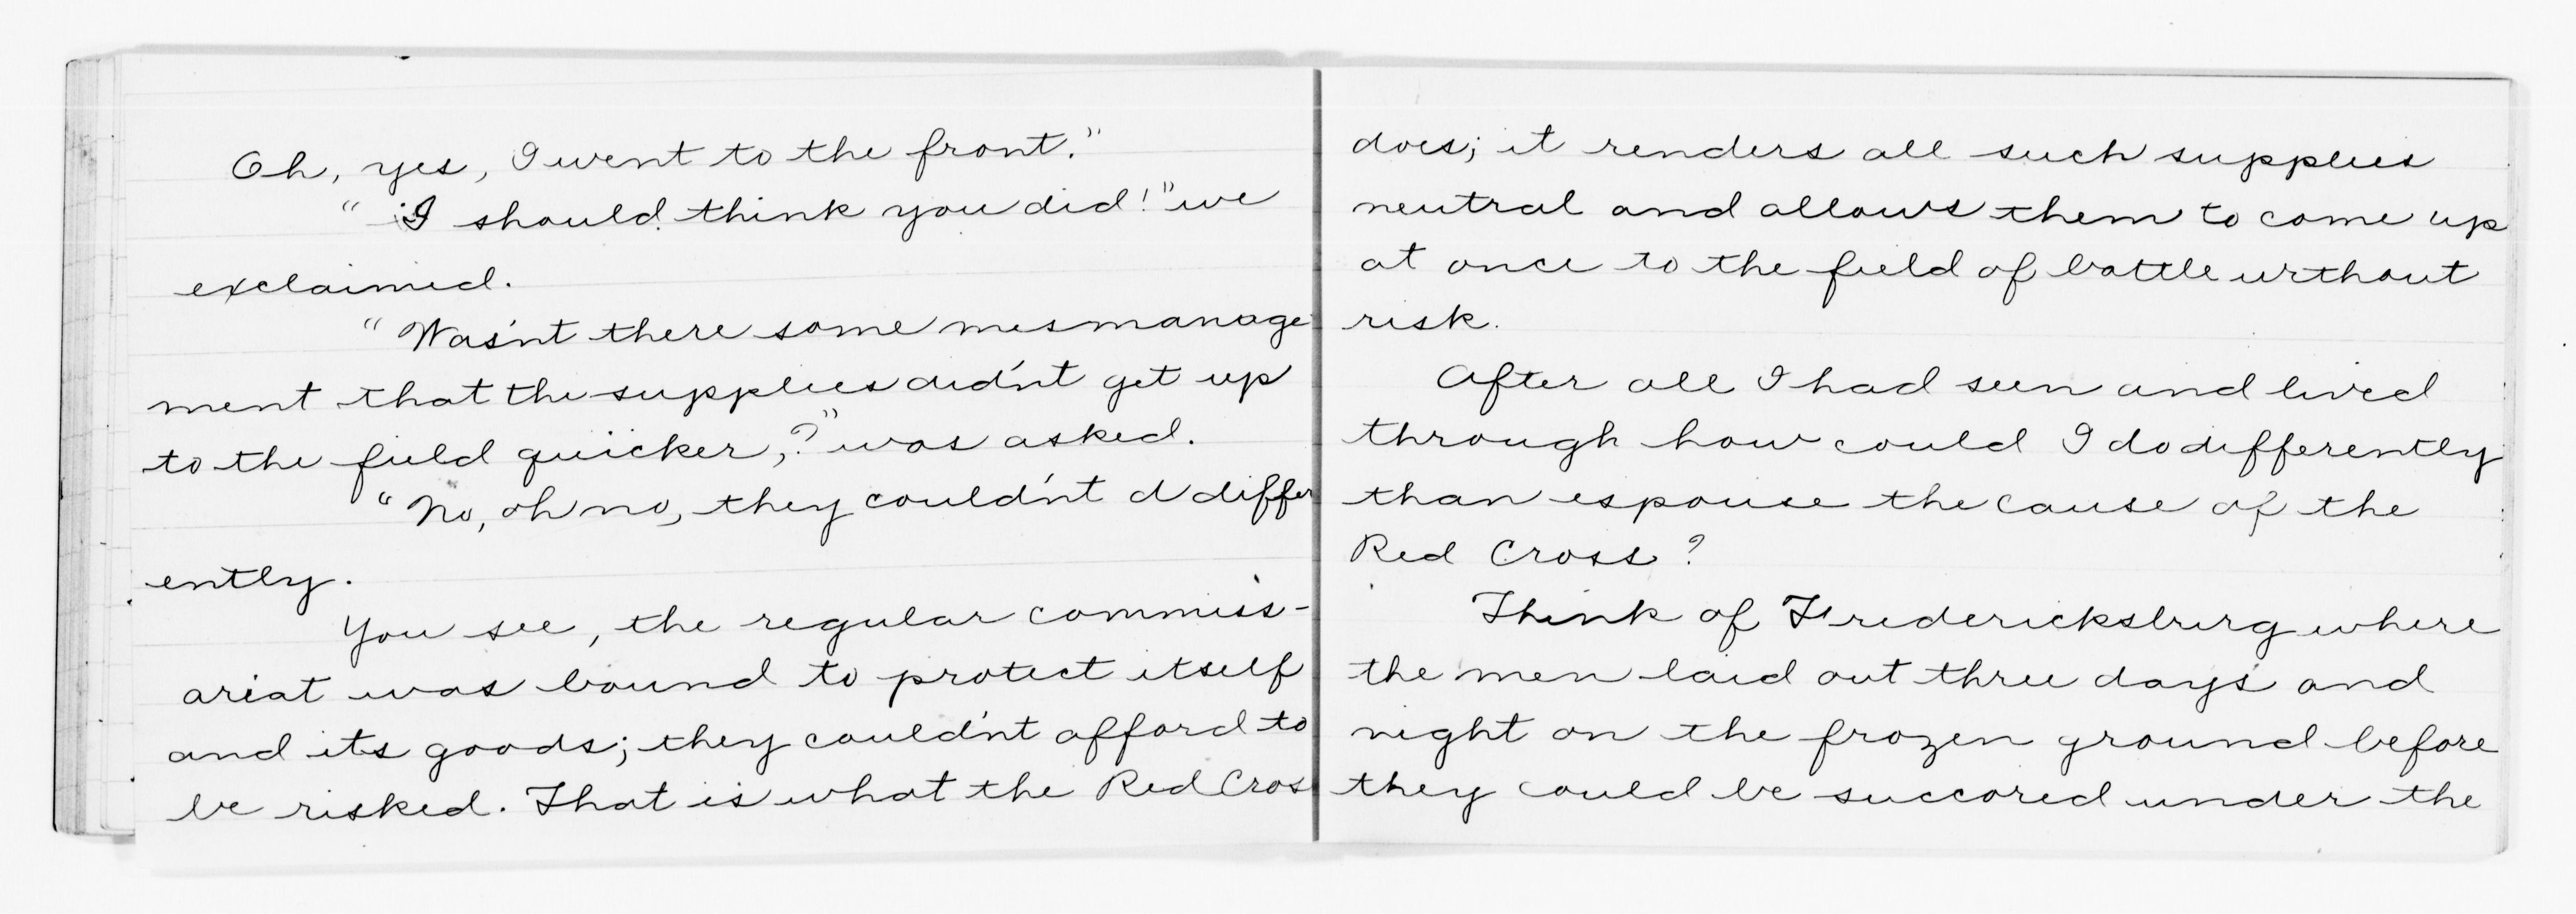 Oh, yes, I went to the front."
" I should think you did!" we
exclaimed.
" Was'nt there some mismanage
ment that the supplies did'nt get up
to the field quicker,?" was asked.
" No, oh no, they could'nt d differ
ently.
You see, the regular commiss-
ariat was bound to protect itself
and its goods; they could'nt afford to
be risked. That is what the Red Cross
does; it renders all such supplies
neutral and allows them to come up
at once to the field of battle without
risk.
After all I had seen and lived
through how could I do differently
than espouse the cause of the
Red Cross?
Think of Fredericksburg where
the men laid out three days and
night on the frozen ground before
they could be succored under the